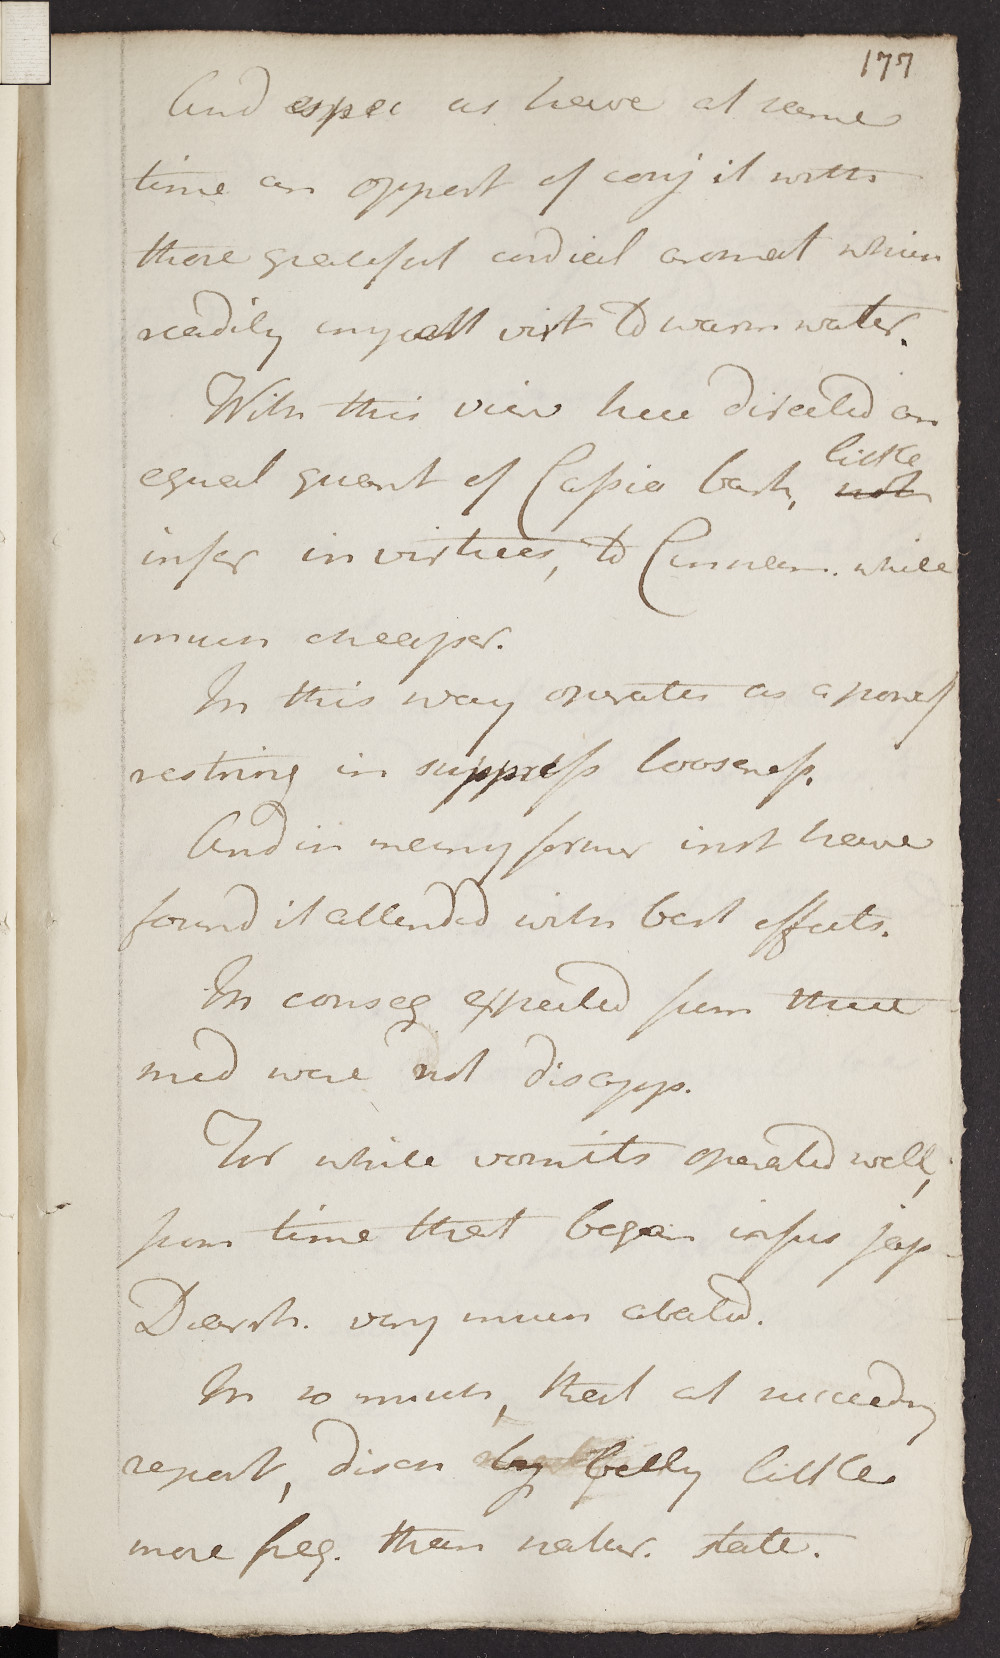 177
And espec as have at same
time an opport of conj it with
those grateful cordial aromat which
readily impart virt to warm water.
With this view have directed an
equal quant of Cassia bark, little
infer in virtues, to Cinnam. while
much cheaper.
In this way operates as a powf
restring in suppress looseness.
And in many former inst have
found it attended with best effects.
In conseq expected from these
med were not disapp.
For while vomits operated well,
from time that began infus jap
Diarrh. very much abated.
In so much, that at succeedng
report, disch by belly little
more freq. than natur. state.